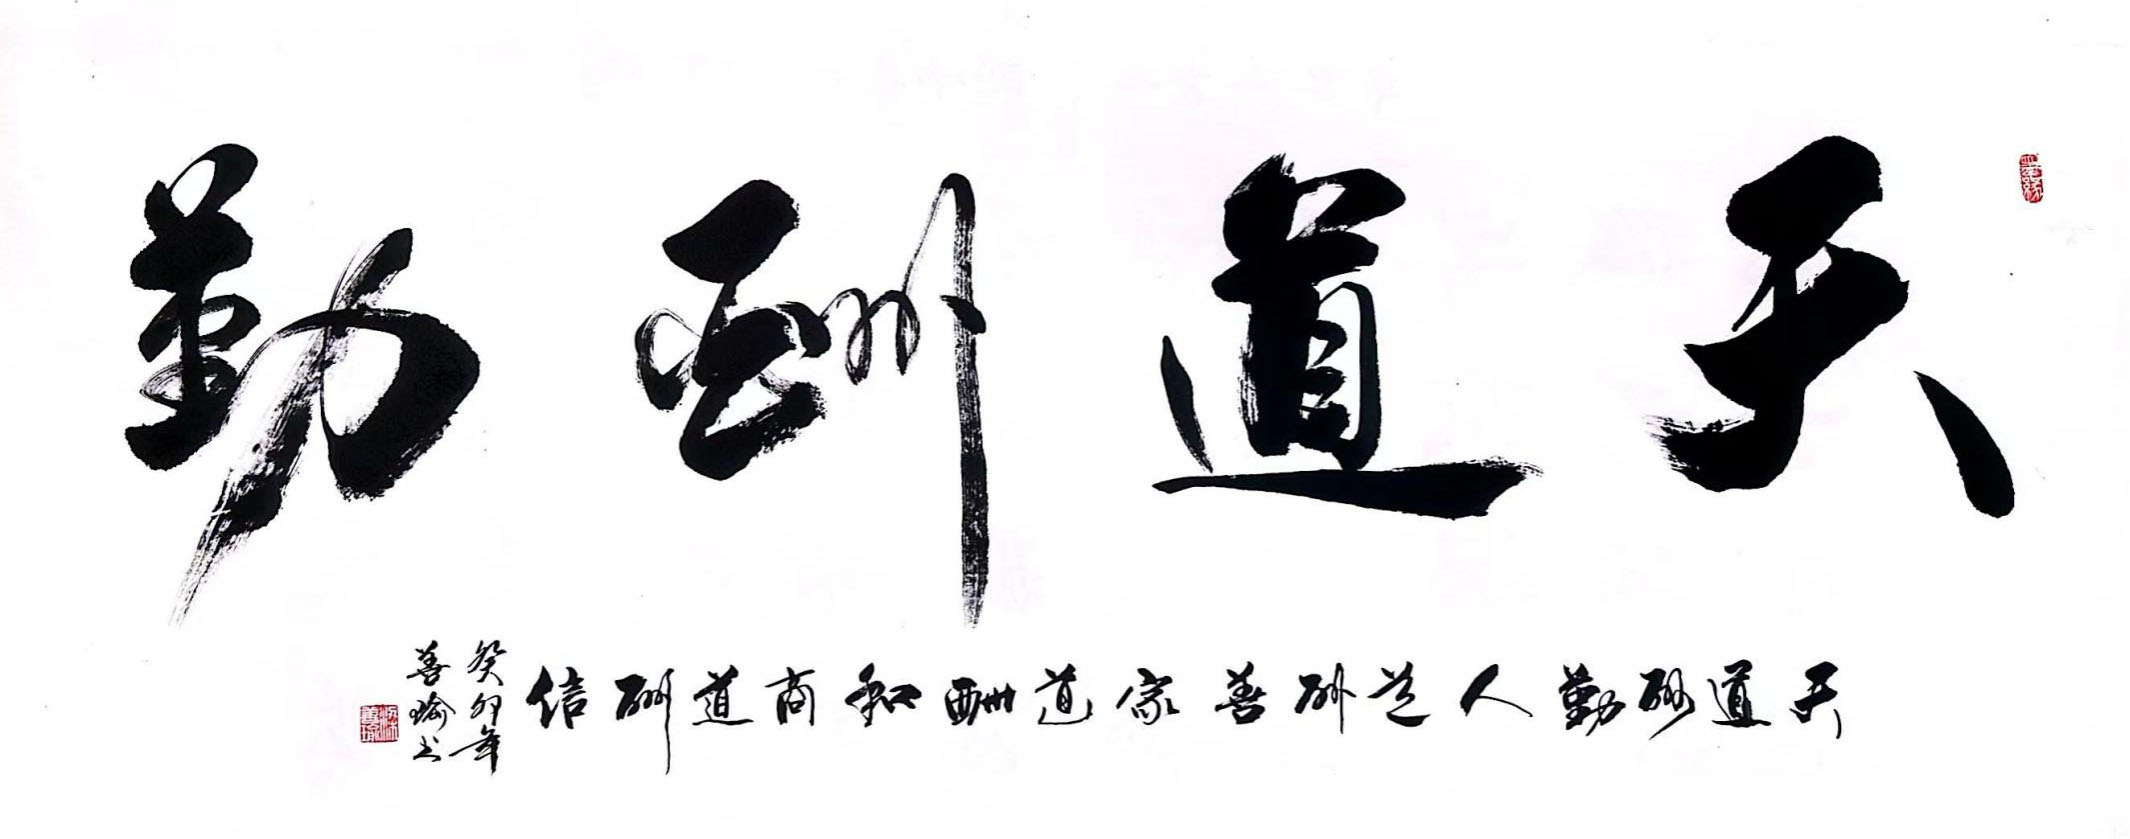 天道酬勤
天道酬勤人道酬善家道酬和商道酬信
癸卯年
善瑜书